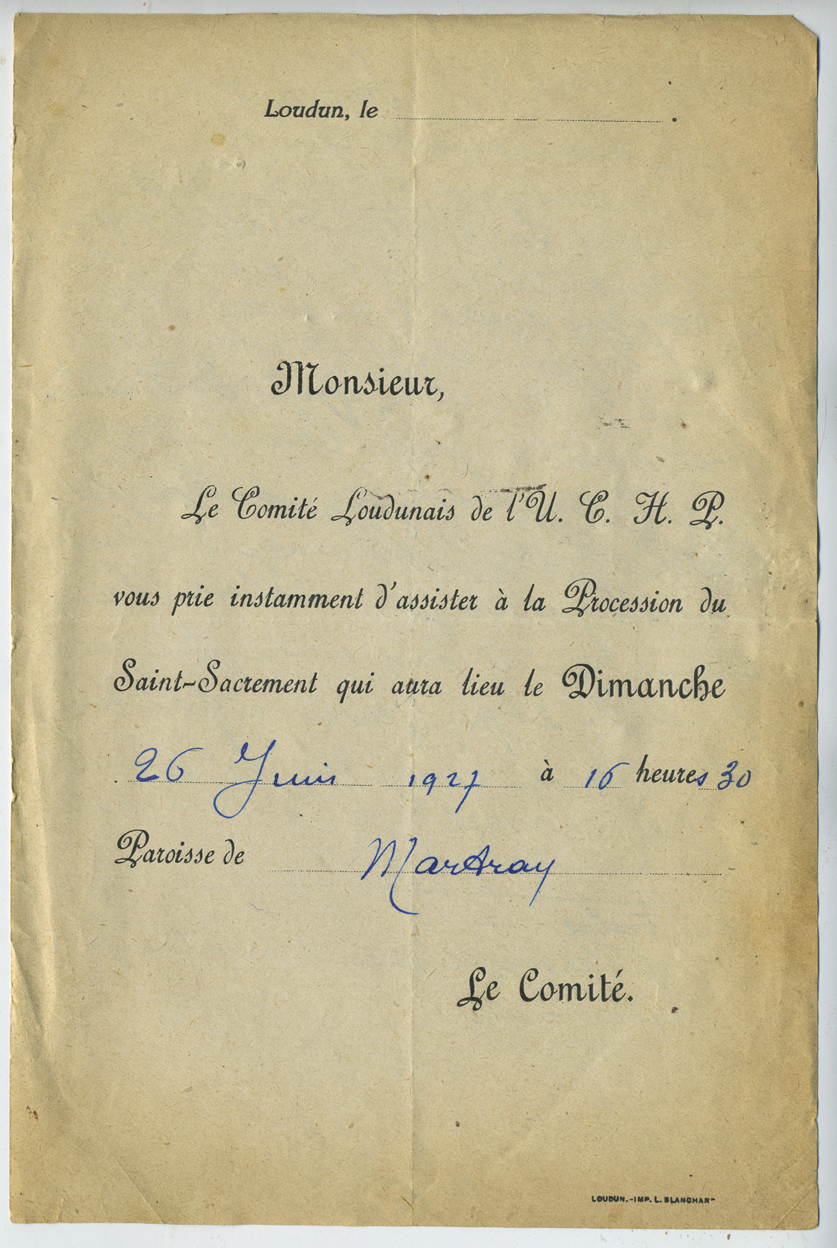 Loudun, le .
Monsieur,
Le Comité Loudunais de l'U. C. H. P.
vous prie instamment d'assister à la Procession du
Saint-Sacrement qui aura lieu le Dimanche
26 Juin 1927 à 16 heures 30
Paroisse de Martray
Le Comité.
LOUDUN.-IMP. L. BLANCHAR